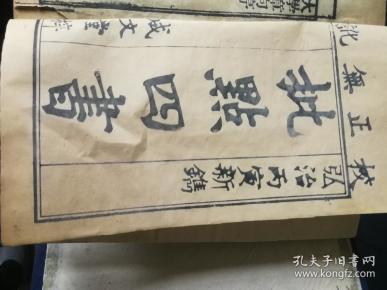 校正無訛
弘治丙寅新鐫
批點四書
成文堂
孔夫子旧书网
www.kongfz.com